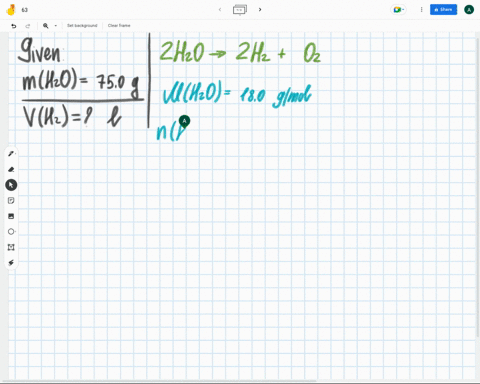 63
Share
A
Set background
Clear frame
Given
m(H2O) = 75.0 g
V(H2) = ? l
2H2O → 2H2 + O2
M(H2O) = 18.0 g/mol
n(
A